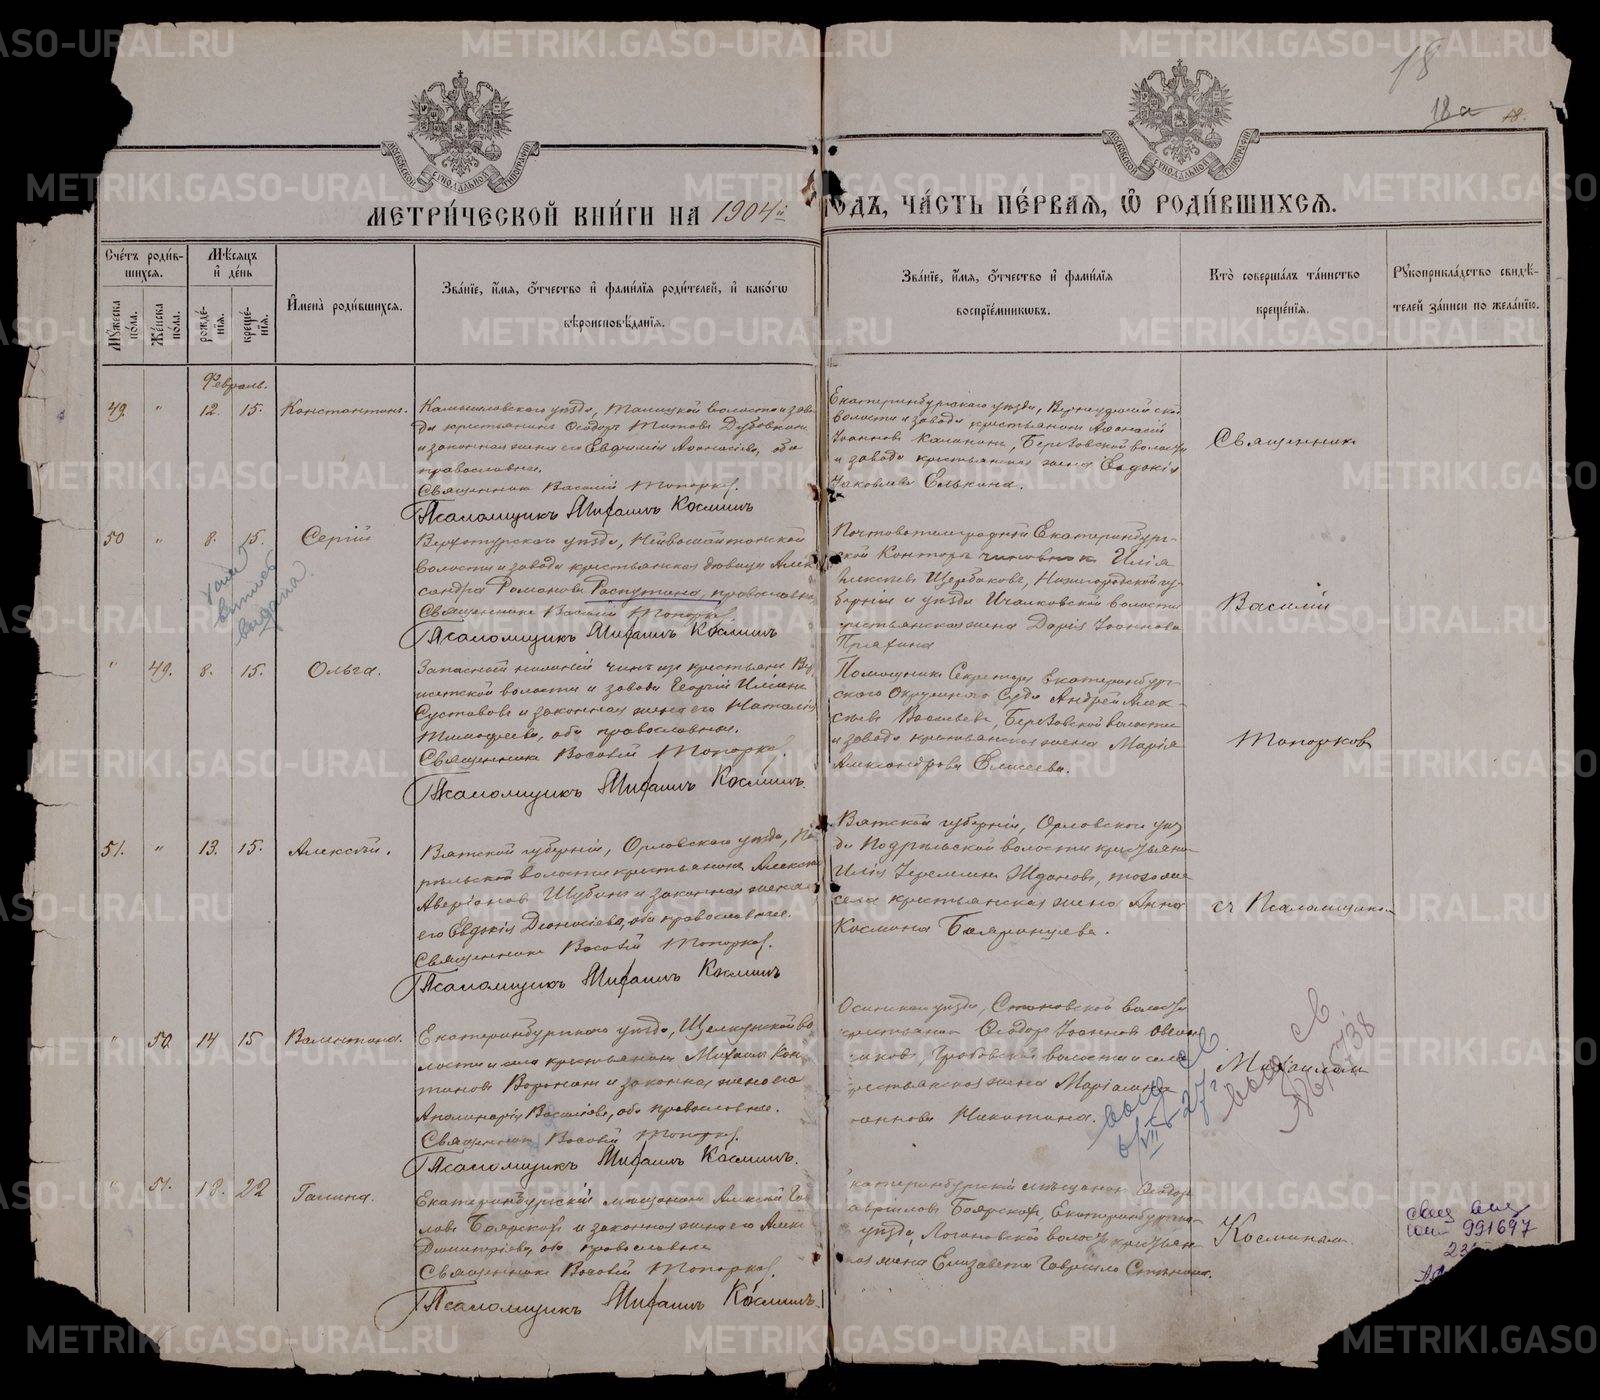 18
18а 18.
МОСКОВСКОЙ СѴНОДАЛЬНОЙ ТИПОГРАФІИ
МОСКОВСКОЙ СѴНОДАЛЬНОЙ ТИПОГРАФІИ
МЕТРИ́ЧЕСКОЙ КНИ́ГИ НА 1904й ГОДЪ, ЧА́СТЬ ПЕ́РВАЯ, Ѽ РОДИ́ВШИХСЯ.
Сче́тъ роди́в-
шихся.
Мѣ́сяцъ
и҆ де́нь
Мꙋ́жеска по́ла.
Же́нска по́ла.
рожде́-нїя.
креще́-нїя.
И҆мена̀ роди́вшихся.
Зва́нїе, и҆́мя, ѻ҆́тчество и҆ фами́лїя роди́телей, и҆ како́гѡ
вѣроисповѣ́данїя.
Зва́нїе, и҆́мя, ѻ҆́тчество и҆ фами́лїя
воспрїе́мникѡвъ.
Кто̀ соверша́лъ та́инство
креще́нїя.
Рꙋкоприкла́дство свидѣ́-
телей за́писи по жела́нїю.
Февраль.
49. " 12. 15. Константинъ.
Камышловскаго уѣзда, Талицкой волости и заво-
да крестьянинъ Ѳеодоръ Титовъ
и законная жена его Евдокія Аѳанасіева, оба
православные.
Священникъ Василій Топорков.
Псаломщикъ Михаилъ Косминъ
Екатеринбургскаго уѣзда, Верхнеуфалейской
волости и завода крестьянинъ Аѳанасій
Іоанновъ Калининъ, Березовской волости
и завода крестьянская жена Евдокія
Іаковлева Елькина.
Священник
50 " 8. 15. Сергій
Верхотурскаго уѣзда, Нейвошайтанской
волости и завода крестьянская дѣвица Алек-
сандра Романова Распутина, православная
Священникъ Василій Топорков
Псаломщикъ Михаилъ Косминъ
выпись
выдана.
Почтово-телеграфной Екатеринбург-
ской Конторы чиновникъ Илія
Алексѣевъ Щербаковъ, Нижегородской гу-
берніи и уѣзда Ичалковской волости
крестьянская жена Дарія Іоаннова
Пряхина
Василій
" 49. 8. 15. Ольга.
Запасный нижній чинъ изъ крестьянъ
волости и завода Георгій Иліинъ
Суставовъ и законная жена его Наталія
Тимоѳеева, оба православные.
Священникъ Василій Топорков.
Псаломщикъ Михаилъ Косминъ.
Помощникъ Секретаря Екатеринбург-
скаго Окружного Суда Андрей Алек-
сѣевъ Васильевъ, Березовской волости
и завода крестьянская жена Марія
Александрова Елисеева.
Топорков
51. " 13. 15. Алексѣй.
Вятской губерніи, Орловскаго уѣзда, Под-
рѣльской волости крестьянинъ Александръ
Аверіановъ Шубинъ и законная жена
его Евдокія Діонисіева, оба православные.
Священникъ Василій Топорков.
Псаломщикъ Михаилъ Косминъ
Вятской губерніи, Орловскаго уѣз-
да Подрѣльской волости крестьянинъ
Илія Іереміинъ Ждановъ, того же
села крестьянская жена Анна
Космина Бояринцева.
съ Псаломщиком
" 50. 14 15 Валентина.
Екатеринбургскаго уѣзда, Щелкунской во-
лости и села крестьянинъ Михаилъ
Воронинъ и законная жена его
Аполинарія Василіева, оба православные.
Священникъ Василій Топорков.
Псаломщикъ Михаилъ Косминъ.
Осинскаго уѣзда, волости
крестьянинъ Ѳеодоръ Іоанновъ Овчин-
никовъ, Гробовской волости и села
крестьянская жена
Никитина.
Михаилом
" 51. 18. 22 Галина.
Екатеринбургскій мѣщанинъ Алексій Гав-
риловъ Боярскій и законная жена его
Димитріева, оба православные
Священникъ Василій Топорков.
Псаломщикъ Михаилъ Косминъ.
Екатеринбургскій мѣщанинъ Ѳеодоръ
Гавриловъ Боярской, Екатеринбургскаго
уѣзда, Логиновской волости крестьян-
ская жена Елизавета Гаврилова
Косминым.
991697
METRIKI.GASO-URAL.RU